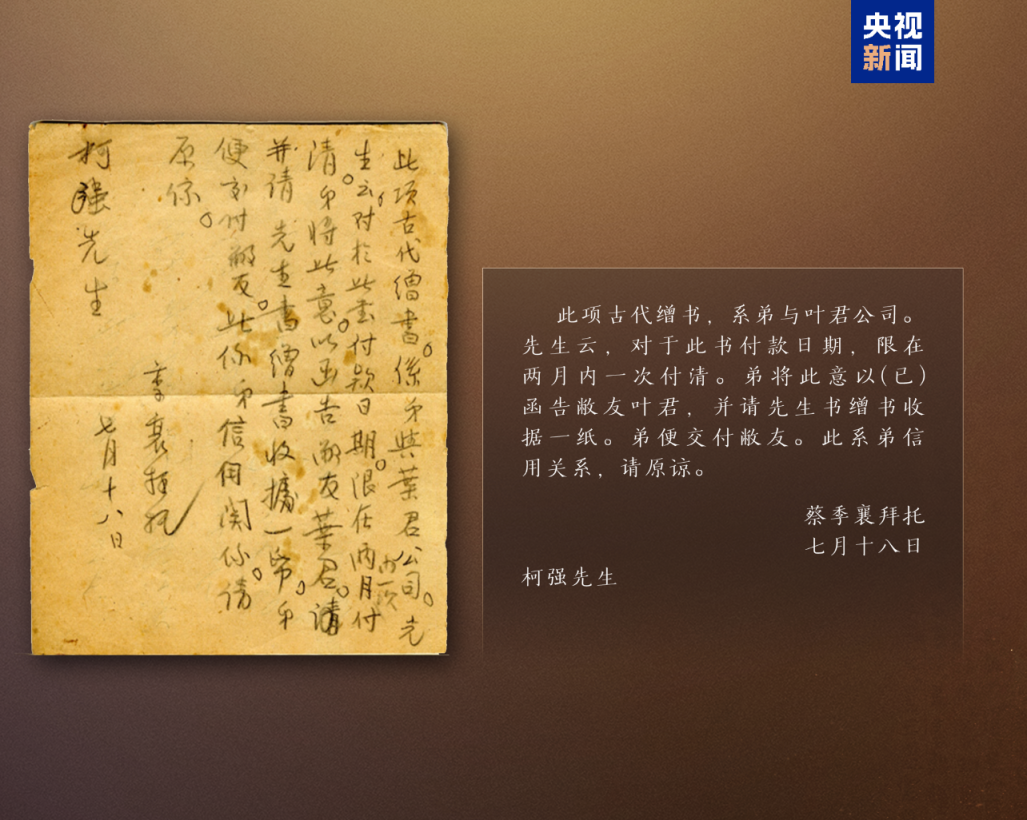 央视
新闻
此项古代缯書。係弟與葉君公司。先
生云，对於此書付款日期。限在两月付
内一次
清。弟将此意以函告敝友葉君。请
并请 先生書缯書收據一帋。弟
便交付敝友。此係弟信用関係。请
原谅。
柯强先生
季襄拜托
七月十八日
此项古代缯书，系弟与叶君公司。
先生云，对于此书付款日期，限在
两月内一次付清。弟将此意以(已)
函告敝友叶君，并请先生书缯书收
据一纸。弟便交付敝友。此系弟信
用关系，请原谅。
蔡季襄拜托
七月十八日
柯强先生